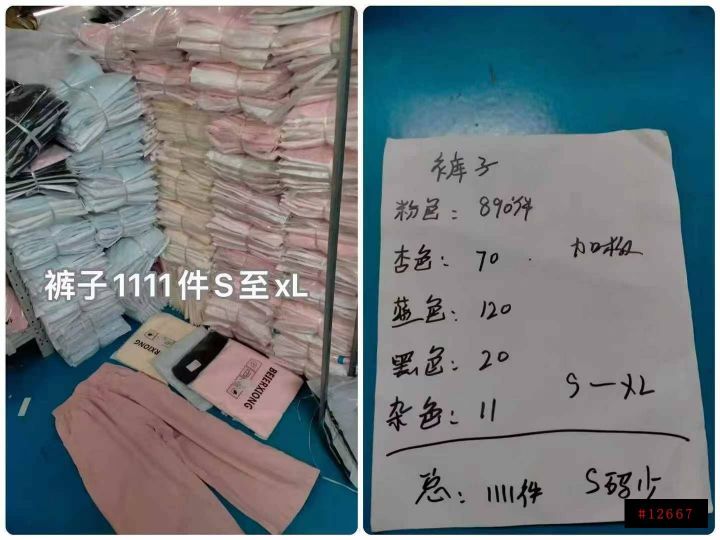 裤子1111件S至xL
BEIERXIONG
RXIONG
裤子
粉色：890件
杏色：70
蓝色：120
黑色：20
S—XL
杂色：11
总：1111件 S码少
#12667